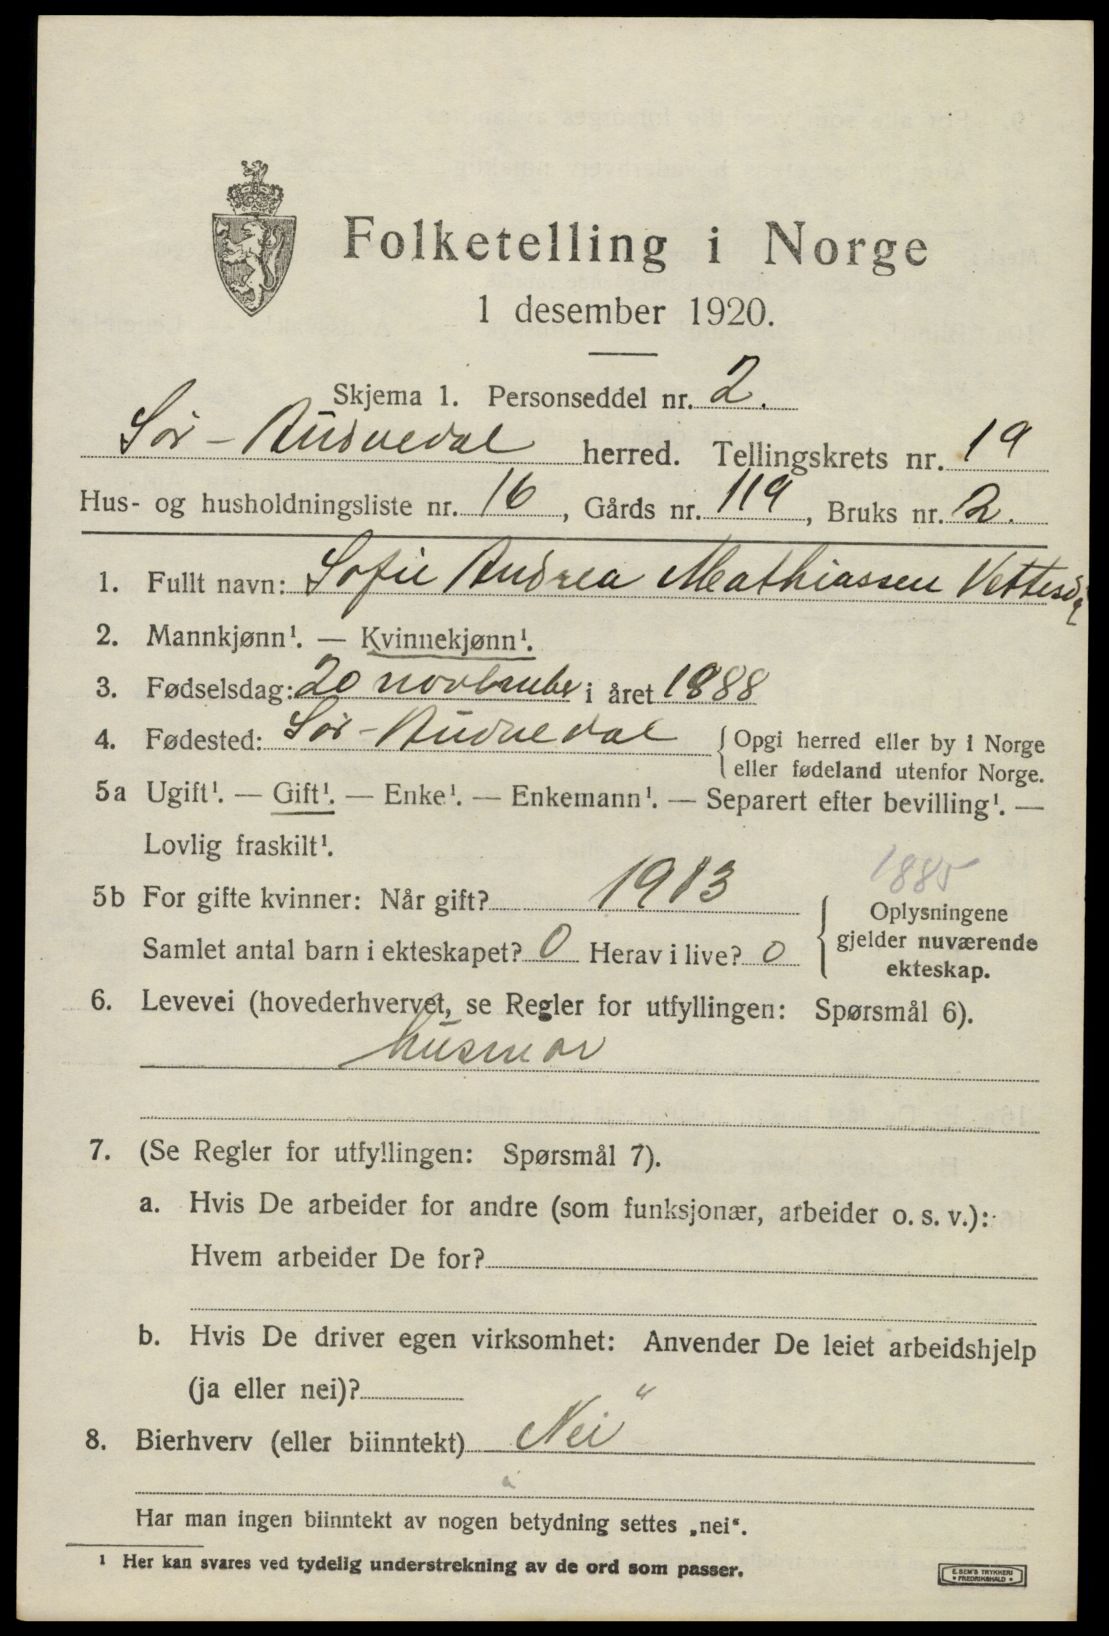 Folketelling i Norge
1 desember 1920.
Skjema 1. Personseddel nr. 2.
Sør-Audnedal herred. Tellingskrets nr. 19
Hus- og husholdningsliste nr. 16, Gårds nr. 119, Bruks nr. 2.
1. Fullt navn: Sofie Andrea Mathiassen
2. Mannkjønn¹. — Kvinnekjønn¹.
3. Fødselsdag: 20 november i året 1888
4. Fødested: Sør-Audnedal { Opgi herred eller by i Norge
eller fødeland utenfor Norge.
5a Ugift¹. — Gift¹. — Enke¹. — Enkemann¹. — Separert efter bevilling¹. —
Lovlig fraskilt¹.
1885
5b For gifte kvinner: Når gift? 1913
Samlet antal barn i ekteskapet? 0 Herav i live? 0
{ Oplysningene
gjelder nuværende
ekteskap.
6. Levevei (hovederhvervet, se Regler for utfyllingen: Spørsmål 6).
husmor
7. (Se Regler for utfyllingen: Spørsmål 7).
a. Hvis De arbeider for andre (som funksjonær, arbeider o. s. v.):
Hvem arbeider De for?
b. Hvis De driver egen virksomhet: Anvender De leiet arbeidshjelp
(ja eller nei)?
8. Bierhverv (eller biinntekt) Nei"
Har man ingen biinntekt av nogen betydning settes „nei“.
¹ Her kan svares ved tydelig understrekning av de ord som passer.
E. SEM'S TRYKKERI
• FREDRIKSHALD •